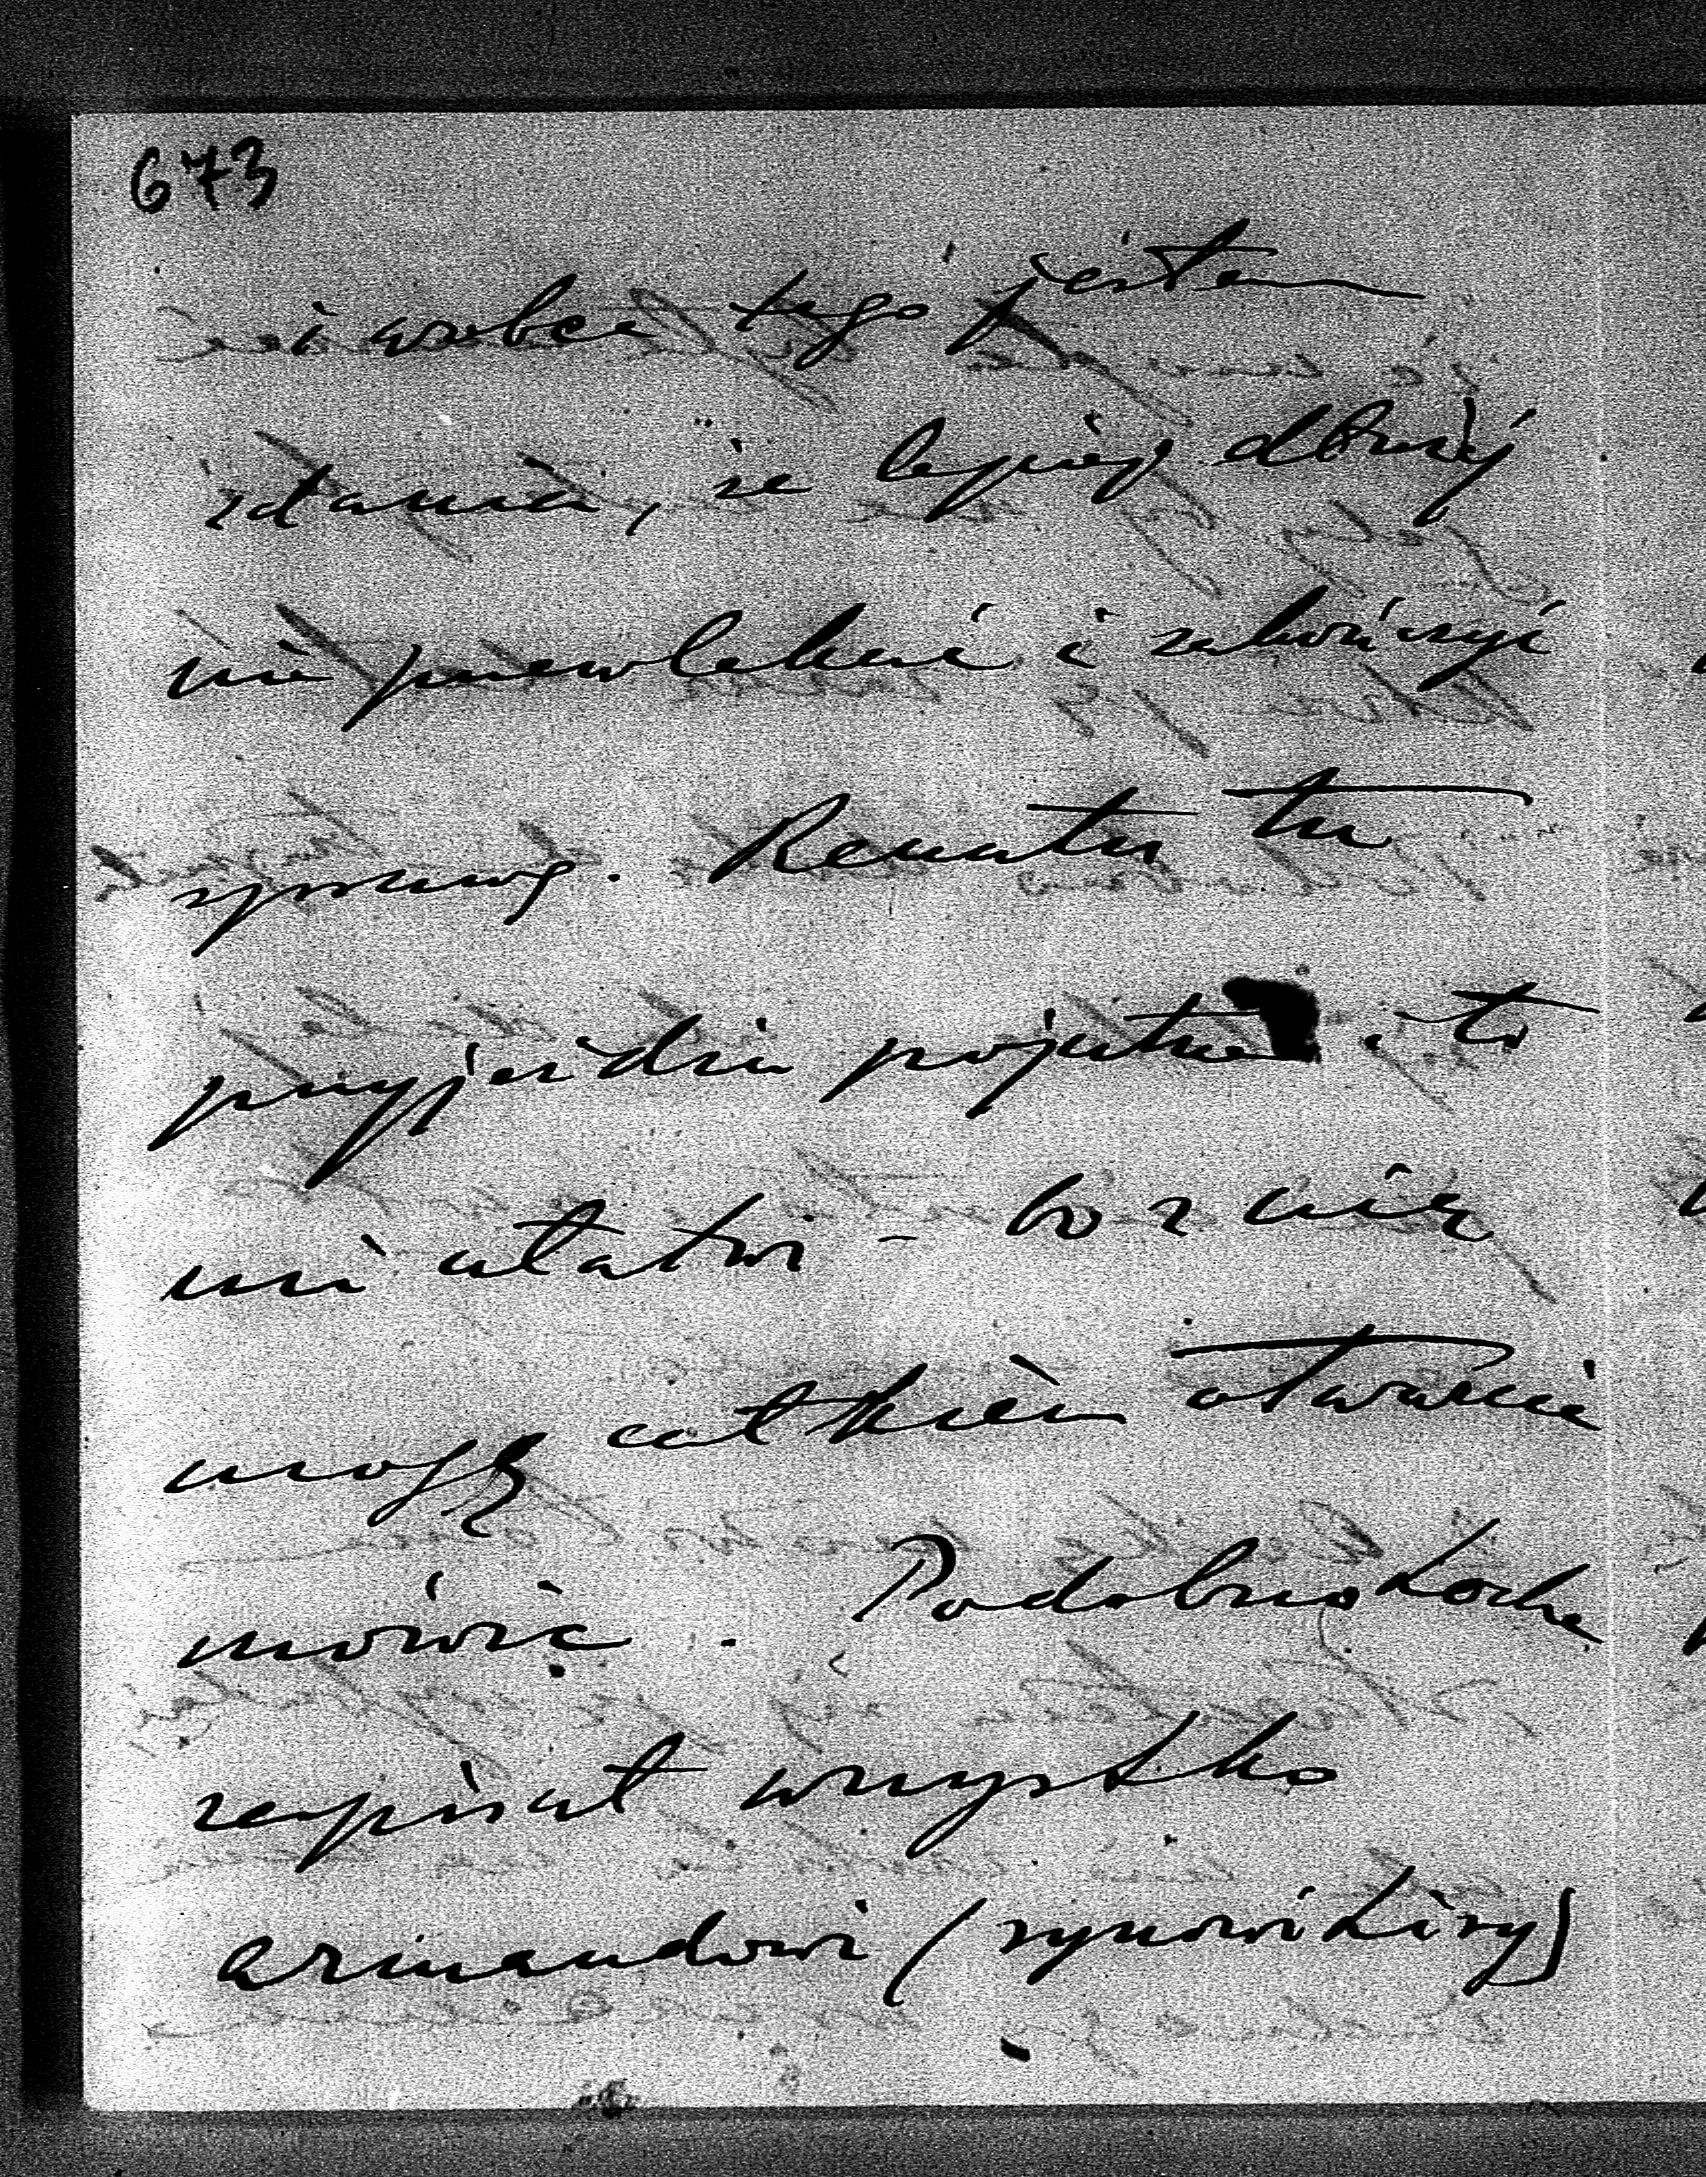 673
i wobec tego jestem
zdania, że lepiéj dłużéj
nie przewlekać i zakończyć
sprawę. Renata tu
przyjeżdża pojutrze i to
mi ułatwi – bo z nią
mogę całkiem otwarcie
mówić. Podobno Locha
zapisał wszystko
Armandowi (synowi Lizy)